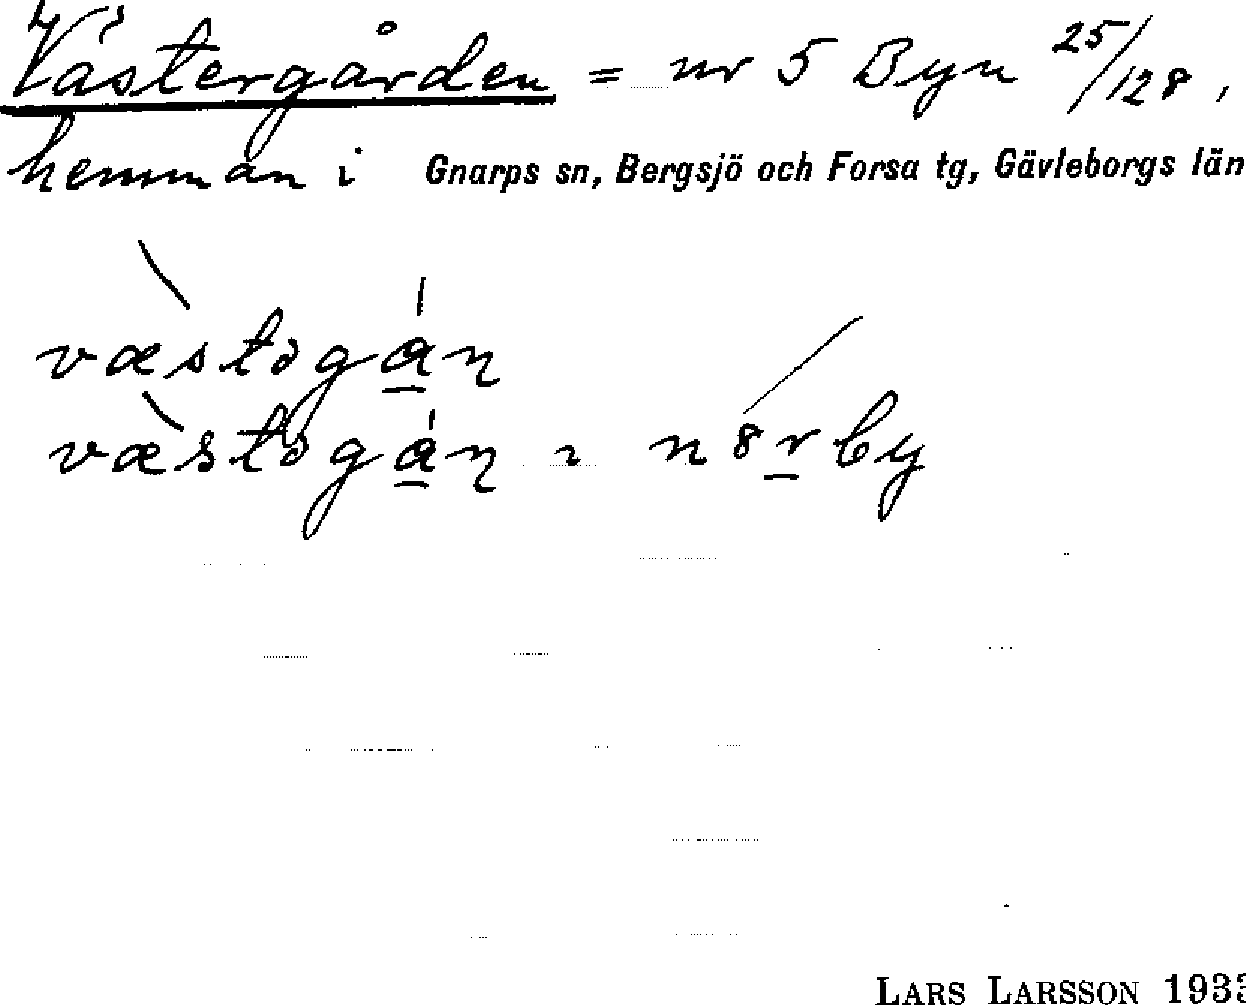 Västergården = nr 5 Byn 25/128,
hemman i Gnarps sn, Bergsjö och Forsa tg, Gävleborgs län
væstəgạ̊n
væstəgạ̊n i nörby
LARS LARSSON 1933